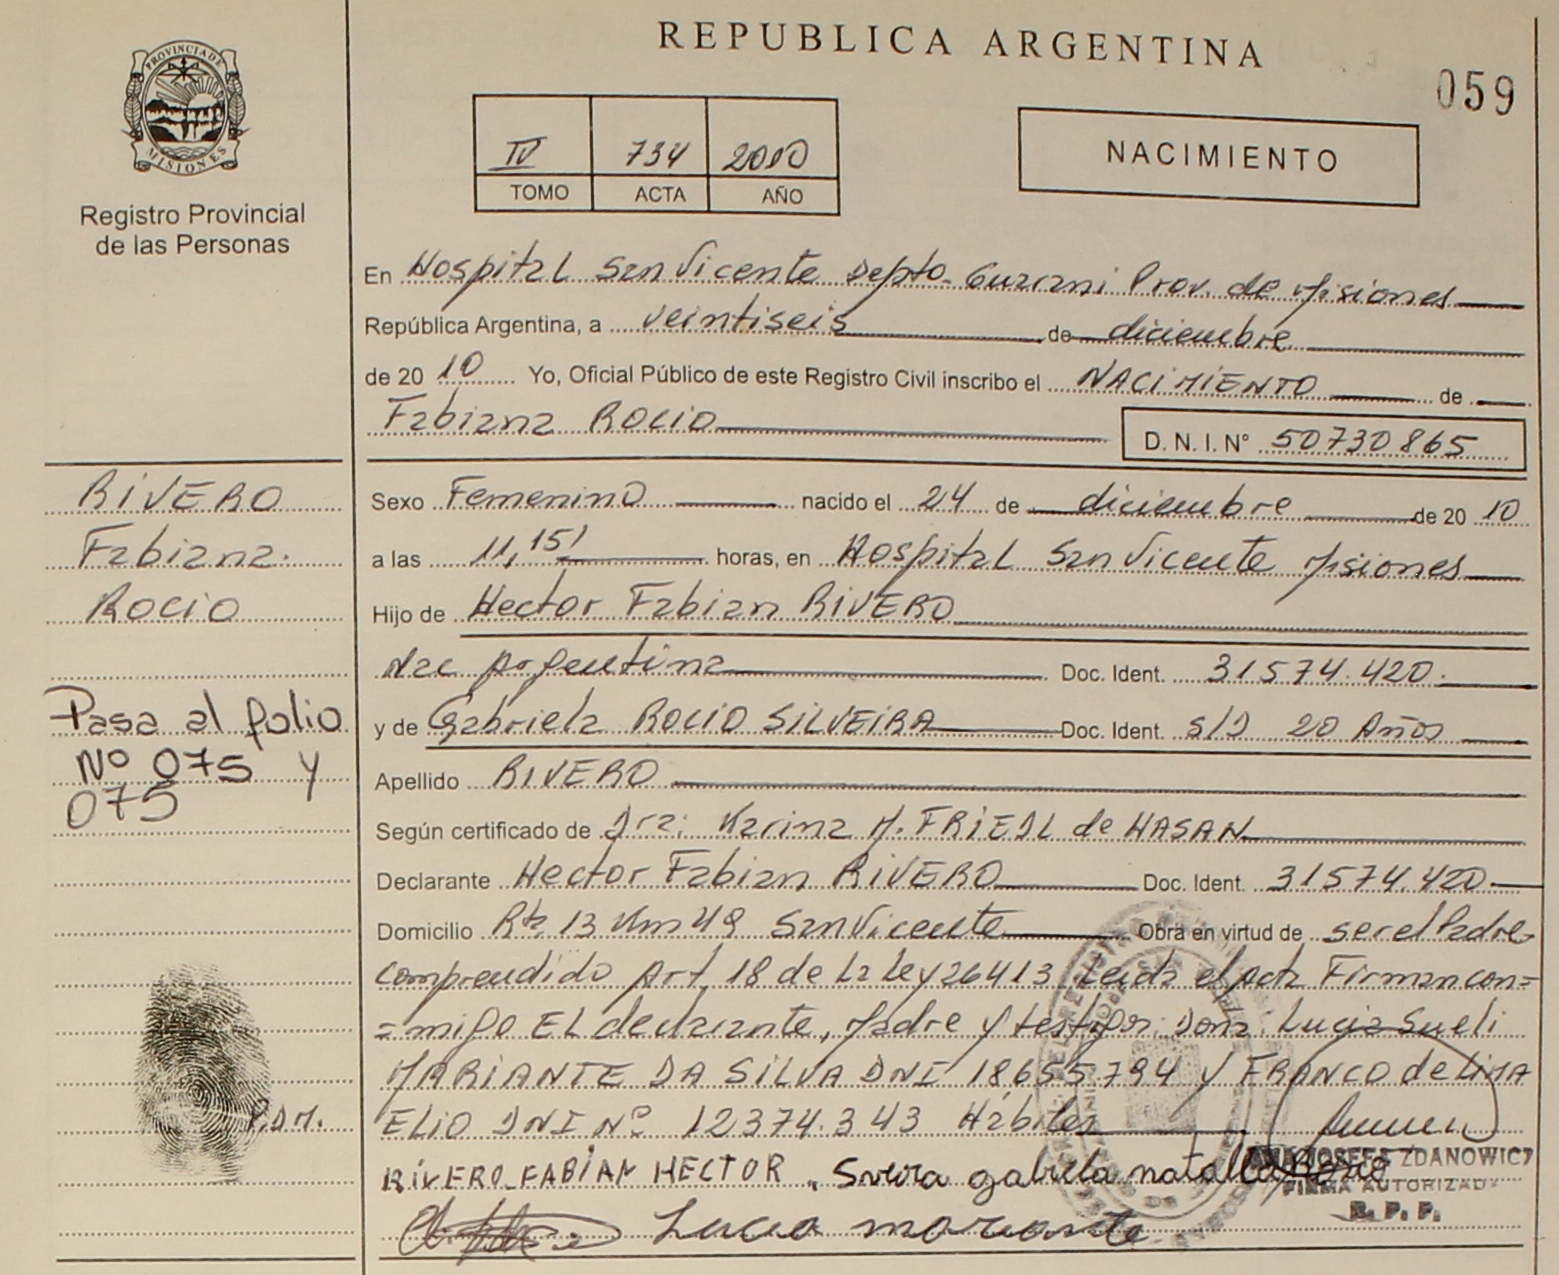 REPUBLICA ARGENTINA
059
PROVINCIA DE MISIONES
Registro Provincial
de las Personas
IV 734 2010
TOMO ACTA AÑO
NACIMIENTO
En Hospital San Vicente Depto. Guarani Prov. de Misiones
República Argentina, a veintiseis de diciembre
de 20 10 Yo, Oficial Público de este Registro Civil inscribo el NACIMIENTO de
Fabiana ROCIO
D. N. I. Nº 50730865
RIVERO
Fabiana
ROCIO
Pasa al folio
Nº 075 y
075
Sexo Femenino nacido el 24 de diciembre de 20 10
a las 11,15 horas, en Hospital San Vicente Misiones
Hijo de Hector Fabian RIVERO
Nac Argentina Doc. Ident. 31574.420
y de Gabriela ROCIO SILVEIRA Doc. Ident. S/D 20 Años
Apellido RIVERO
Según certificado de Dra: Karina M. FRIEDL de HASAN
Declarante Hector Fabian RIVERO Doc. Ident. 31574.420
Domicilio Rta 13 Km 49 San Vicente Obra en virtud de ser el Padre
comprendido Art. 18 de la Ley 26413 Leida el Acta Firman con=
=migo EL declarante, Madre y testigos: Dona. Lucia Sueli
MARIANTE DA SILVA DNI 18655794 y FRANCO de LIMA
ELIO DNI Nº 12374.343 Hábiles
P.D.M.
RIVERO FABIAN HECTOR gabriela natalia
JOSEFA ZDANOWICZ
FIRMA AUTORIZADA
R. P. P.
Lucia mariante